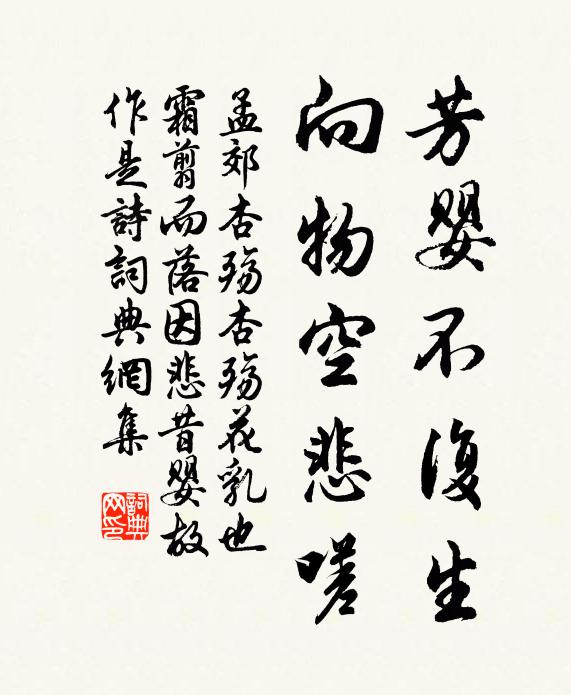 芳嬰不復生
向物空悲嗟
孟郊杏殤杏殤花乳也
霜翦而落因悲昔嬰故
作是詩詞典網集
詞典网印